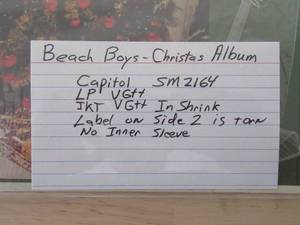 Beach Boys - Christas Album
Capitol SM2164
LP VG++
JKT VG++ In Shrink
Label on Side 2 is torn
No Inner Sleeve